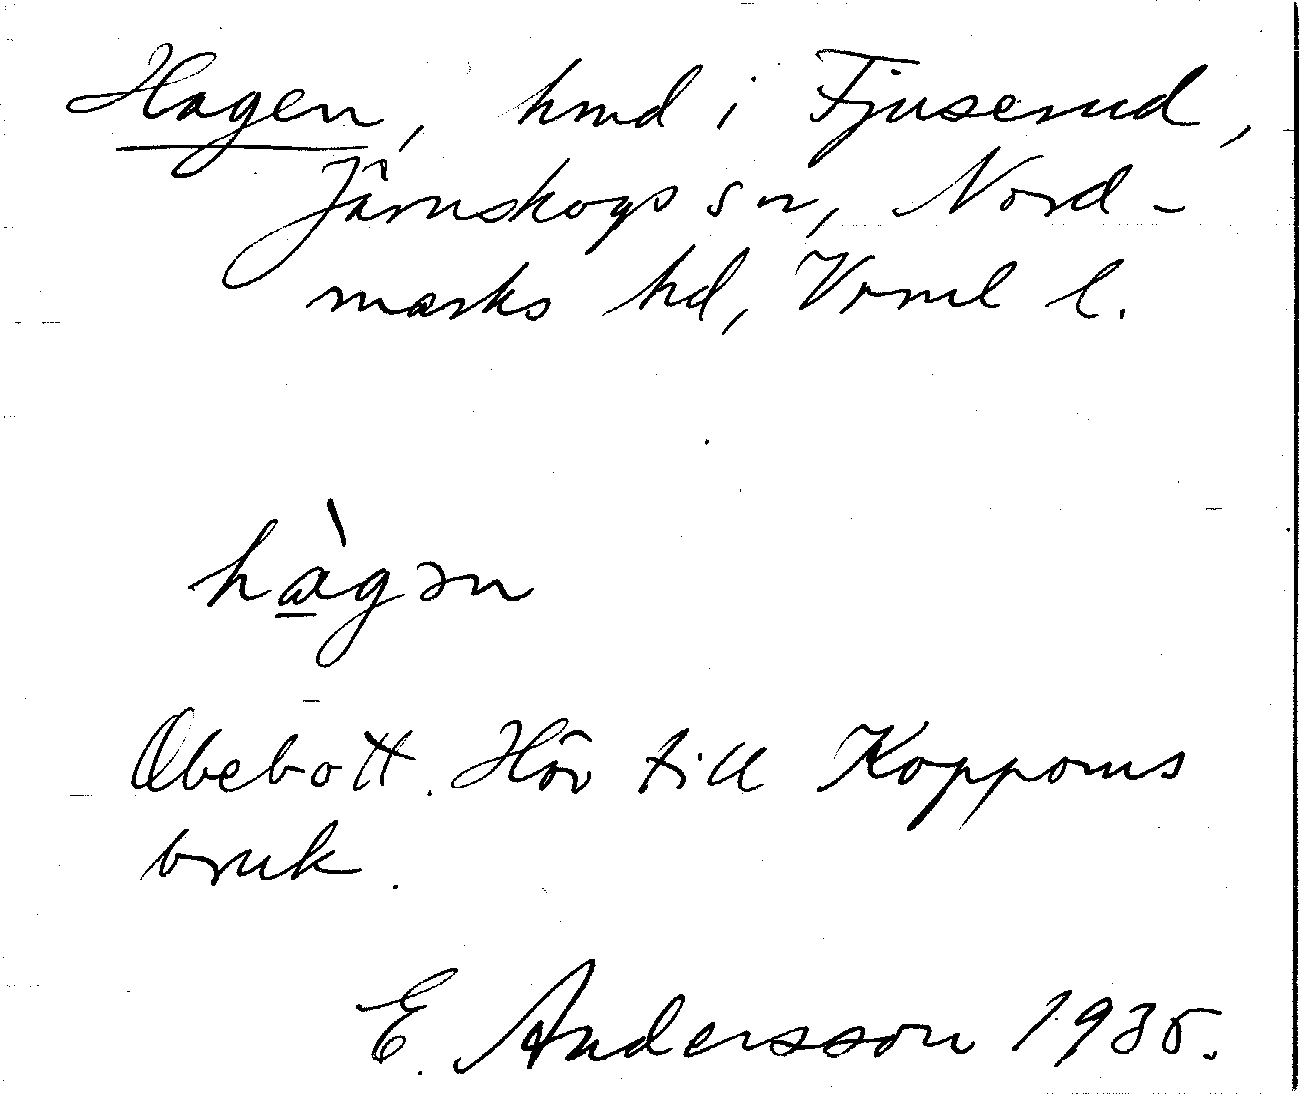 Hagen, hmd i Fjuserud,
Järnskogs sn, Nord-
marks hd, Vrml l.
hàgən
Obebott. Hör till Koppoms
bruk.
E. Andersson 1935.